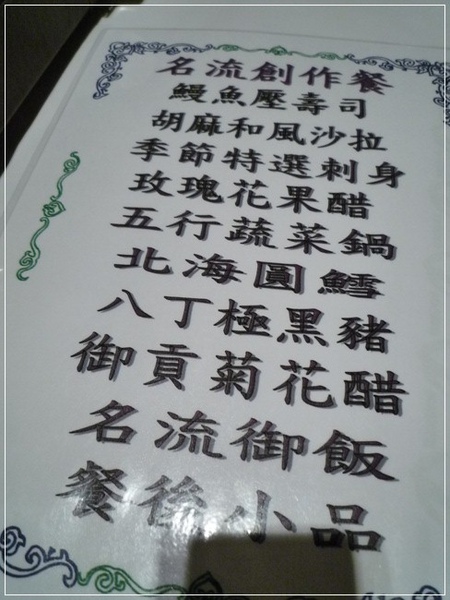 名流創作餐
鰻魚壓壽司
胡麻和風沙拉
季節特選刺身
玫瑰花果醋
五行蔬菜鍋
北海圓鱈
八丁極黑豬
御貢菊花醋
名流御飯
餐後小品